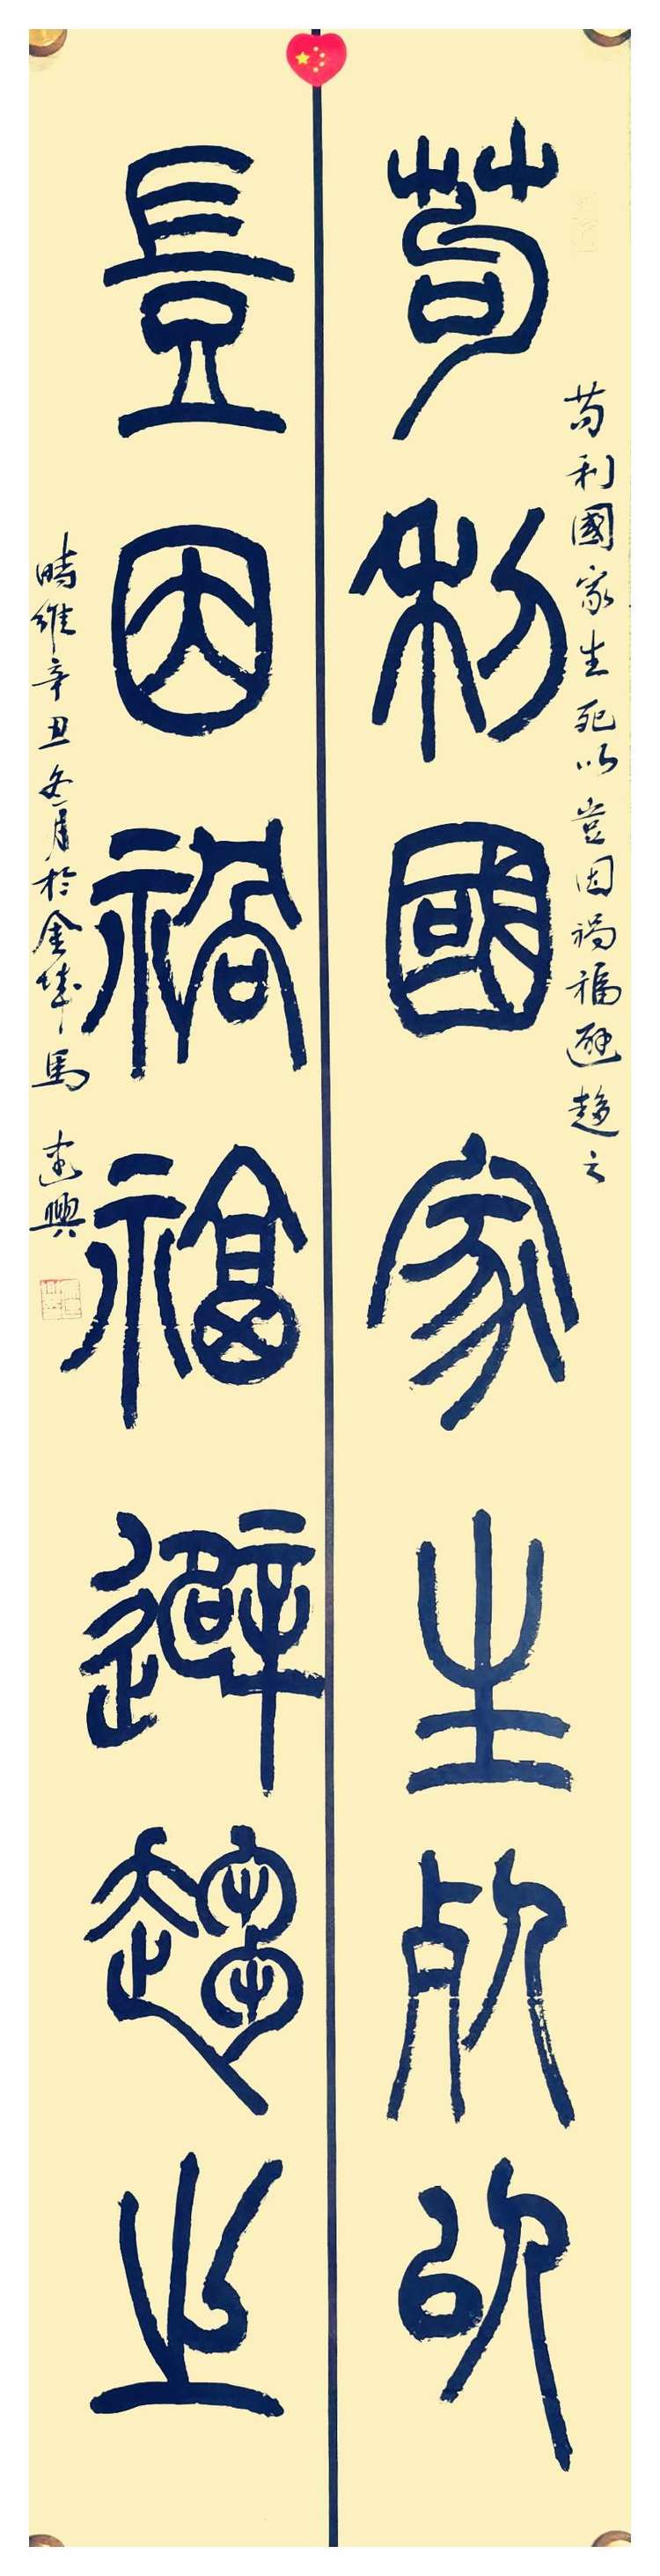 苟利國家生死以豈因禍福避趨之
苟利國家生死以
豈因禍福避趨之
時維辛丑冬月於金城馬建興